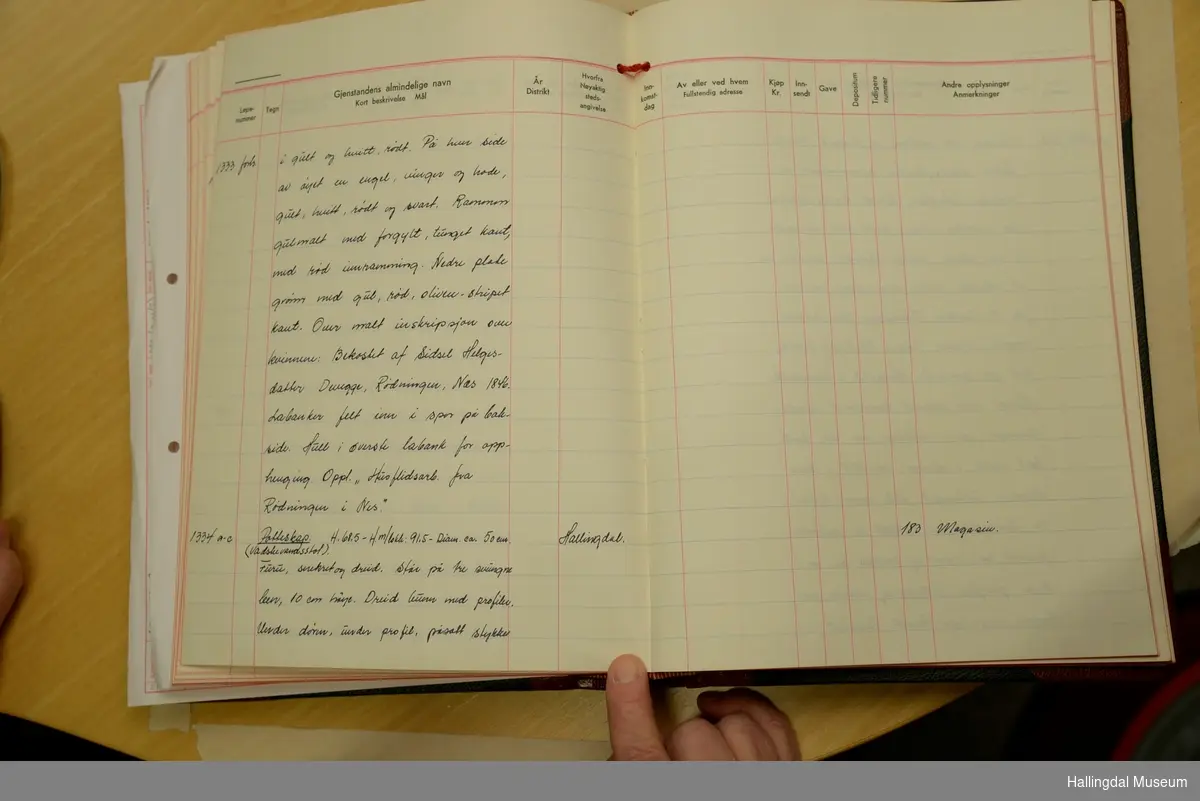 Løpe-nummer
Tegn
Gjenstandens almindelige navn
Kort beskrivelse Mål
År
Distrikt
Hvorfra
Nøyaktig
steds-
angivelse
Inn-
komst-
dag
Av eller ved hvem
Fullstendig adresse
Kjøp
Kr.
Inn-
sendt
Gave
Depositum
Tidligere
nummer
Andre opplysninger
Anmerkninger
1333 forts. i gult og hvitt, rødt. På hver side
av øyet en engel, vinger og hode,
gult, hvitt, rødt og svart. Rammen
gulmalt med forgylt, tunget kant,
med rød innramming. Nedre plate
grønn med gul, rød, oliven-stripet
kant. Over malt inskripsjon over
kvinnene: Bekostet af Sidsel Helges-
datter Rødningen, Næs 1846.
Labanker felt inn i spor på bak-
side. Hull i øverste labank for opp-
henging Oppl. „Husflidsarb. fra
Rødningen i Nes."
1334 a-c Potteskap. H. 68.5 - H m/lokk. 91.5 - Diam. ca. 50 cm. Hallingdal. 183 Magasin.
Furu, snekret og dreid. Står på tre svungne
ben, 10 cm høye. Dreid bunn med profiler.
Under døren, under profil, påsatt stykke
Hallingdal Museum